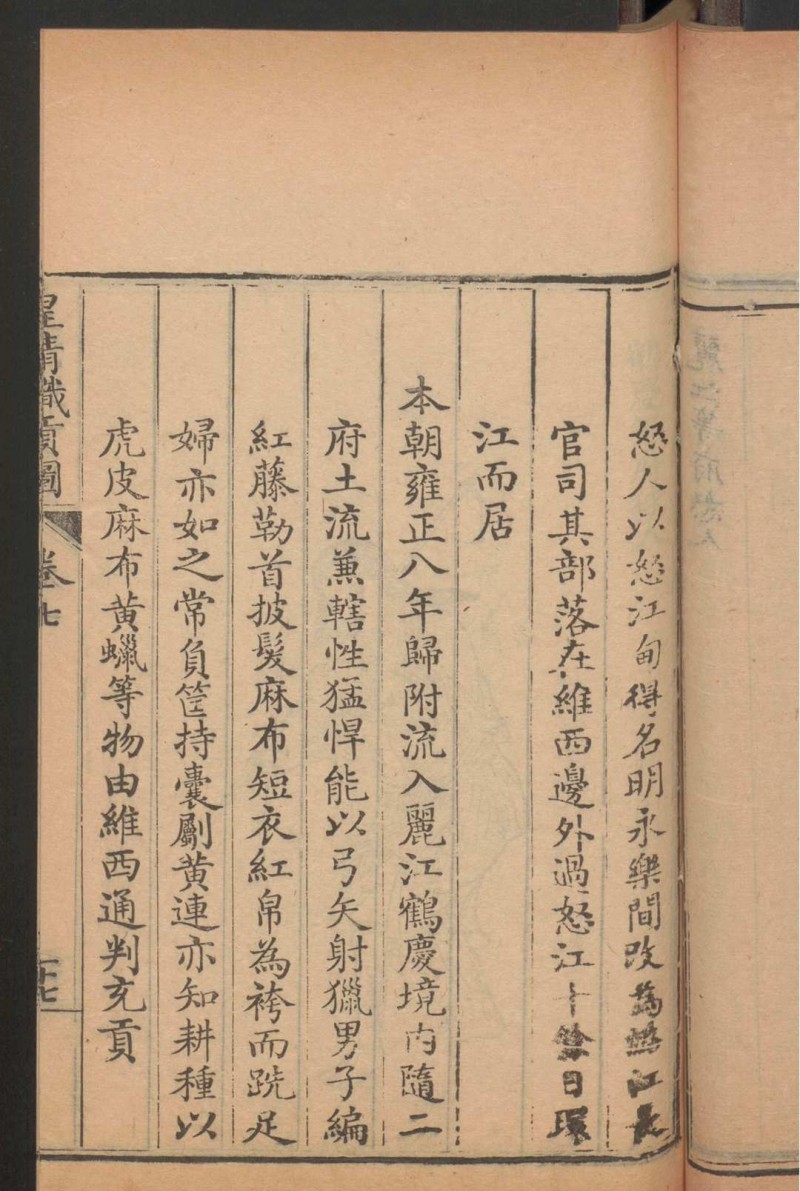 怒人以怒江甸得名明永樂間改為怒江長
官司其部落在維西邊外過怒江十餘日環
江而居
本朝雍正八年歸附流入麗江鶴慶境内隨二
府土流兼轄性猛悍能以弓矢射獵男子編
紅藤勒首披髮麻布短衣紅帛為袴而跣足
婦亦如之常負筐持囊劚黄連亦知耕種以
虎皮麻布黄蠟等物由維西通判充貢
皇清職貢圖 卷七